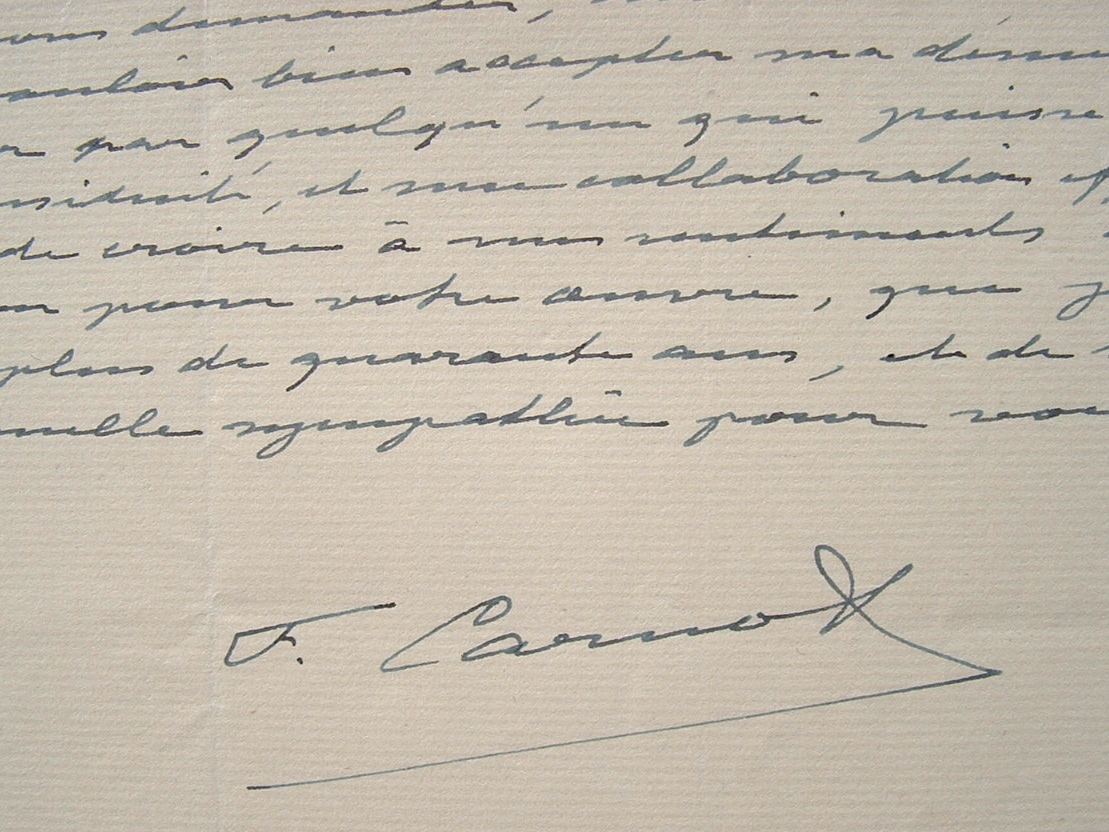 vous demander,
vouloir bien accepter ma démis
r par quelqu'un qui puisse
ssiduité, et une collaboration eff
de croire à mes sentiments
on pour votre œuvre, que j
plus de quarante ans, et de
nnelle sympathie pour vou
F. Carnot